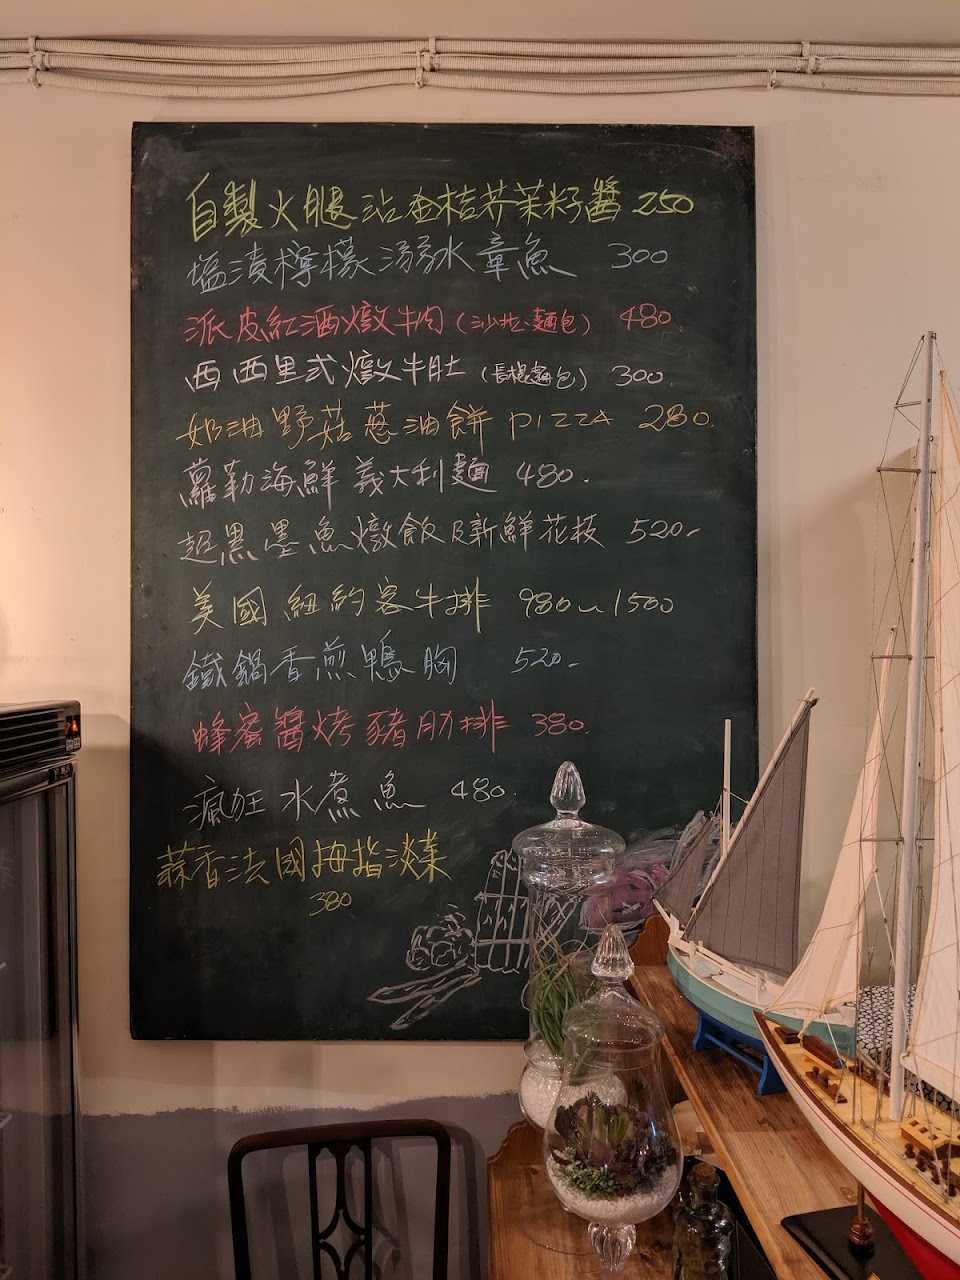 自製火腿沾金桔芥茉籽醬 250
塩漬檸檬溺水章魚 300
派皮紅酒燉牛肉(沙拉、麵包) 480.
西西里式燉牛肚(長棍麵包) 300.
奶油野菇蔥油餅 pizza 280.
蘿勒海鮮義大利麵 480.
超黑墨魚燉飯及新鮮花枝 520-
美國紐約客牛排 980~1500
鐵鍋香煎鴨胸 520-
蜂蜜醬烤豬肋排 380.
瘋狂水煮魚 480.
蒜香法國拇指淡菜
380